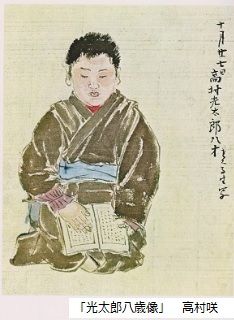 十月廿七日
高村光太郎八才
「光太郎八歳像」 高村咲